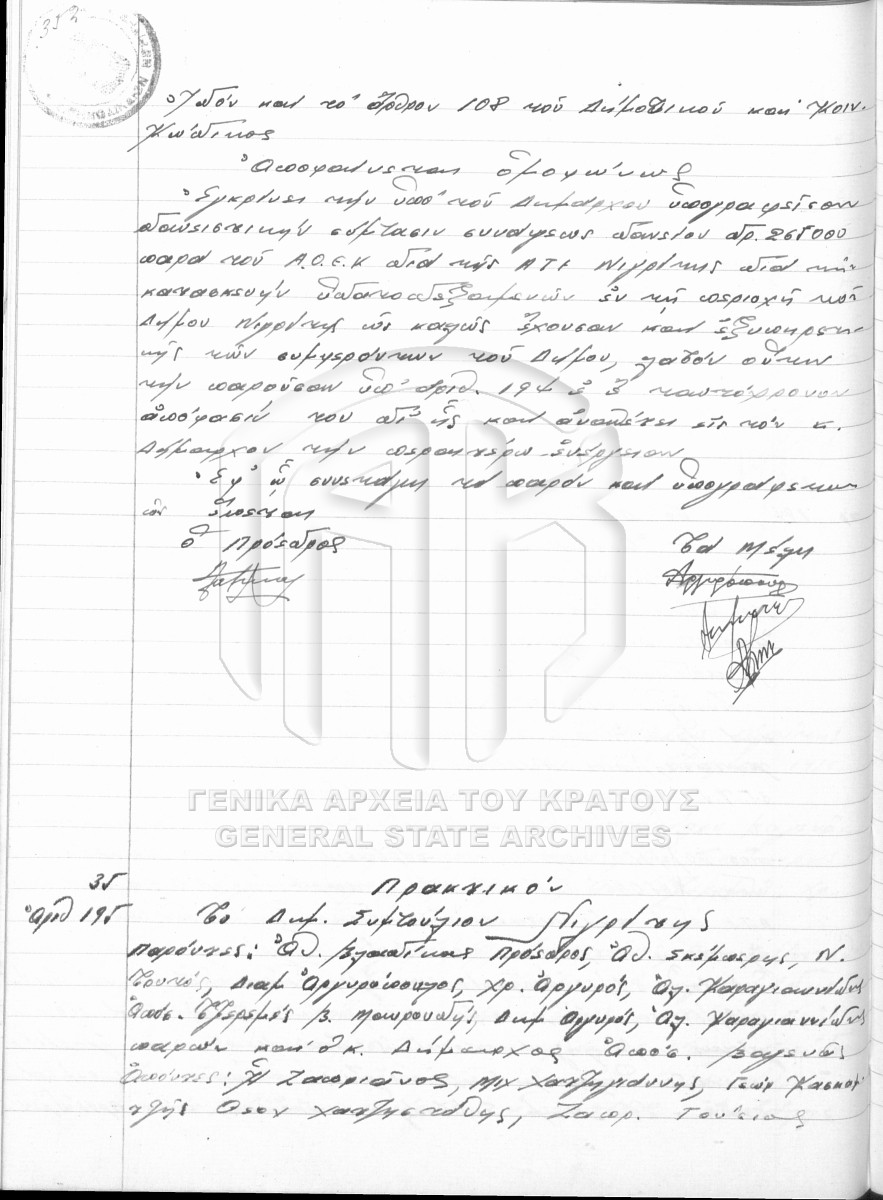 352
Ἰδὸν καὶ τὸ ἄρθρον 108 τοῦ Δημοτικοῦ καὶ Κοιν.
Κώδικος
Ἀποφαίνεται ὁμοφώνως
Ἐγκρίνει τὴν ὑπὸ τοῦ Δημάρχου ὑπογραφεῖσαν
δανειστικὴν σύμβασιν συνάψεως δανείου δρ. 265000
παρὰ τοῦ Α.Ο.Ε.Κ διὰ τῆς ΑΤΕ Νιγρίτης διὰ τὴν
κατασκευὴν ὑδατοδεξαμενῶν ἐν τῇ περιοχῇ τοῦ
Δήμου Νιγρίτης ὡς καλῶς ἔχουσαν καὶ ἐξυπηρετι-
κῆς τῶν συμφερόντων τοῦ Δήμου, λαβὸν οὕτω
τὴν παροῦσαν ὑπ' ἀριθ. 194 ταυτόχρονον
ἀπόφασίν του δι' ἧς καὶ ἀναθέτει εἰς τὸν κ.
Δήμαρχον τὴν περαιτέρω ἐνέργειαν
Ἐφ' ᾧ συνετάγη τὸ παρὸν καὶ ὑπογράφεται
ὡς ἕπεται
Ὁ Πρόεδρος Τὰ Μέλη
ΓΕΝΙΚΑ ΑΡΧΕΙΑ ΤΟΥ ΚΡΑΤΟΥΣ
GENERAL STATE ARCHIVES
35 Πρακτικόν
Ἀριθ 195 Τὸ Δημ. Συμβούλιον Νιγρίτης
Παρόντες: Ἀθ. Πρόεδρος, Ἀθ. Σκέμπερης, Ν.
Τουτός, Διαμ Ἀργυρόπουλος, Χρ. Ἀργυρός, Ἀλ. Καραγιαννίδης
Ἀπόσ. Τζερεμές Β. Μαυρουδής, Δημ Ἀργυρός, Ἀλ. Καραγιαννίδης
παρὼν καὶ ὁ κ. Δήμαρχος Ἀπόσ.
Ἀπόντες: Ζαπριάνος, Μιχ Χατζηγιάννης, Γεώρ
Θεον Χατζηστάθης, Ζαπρ. Τούσιος